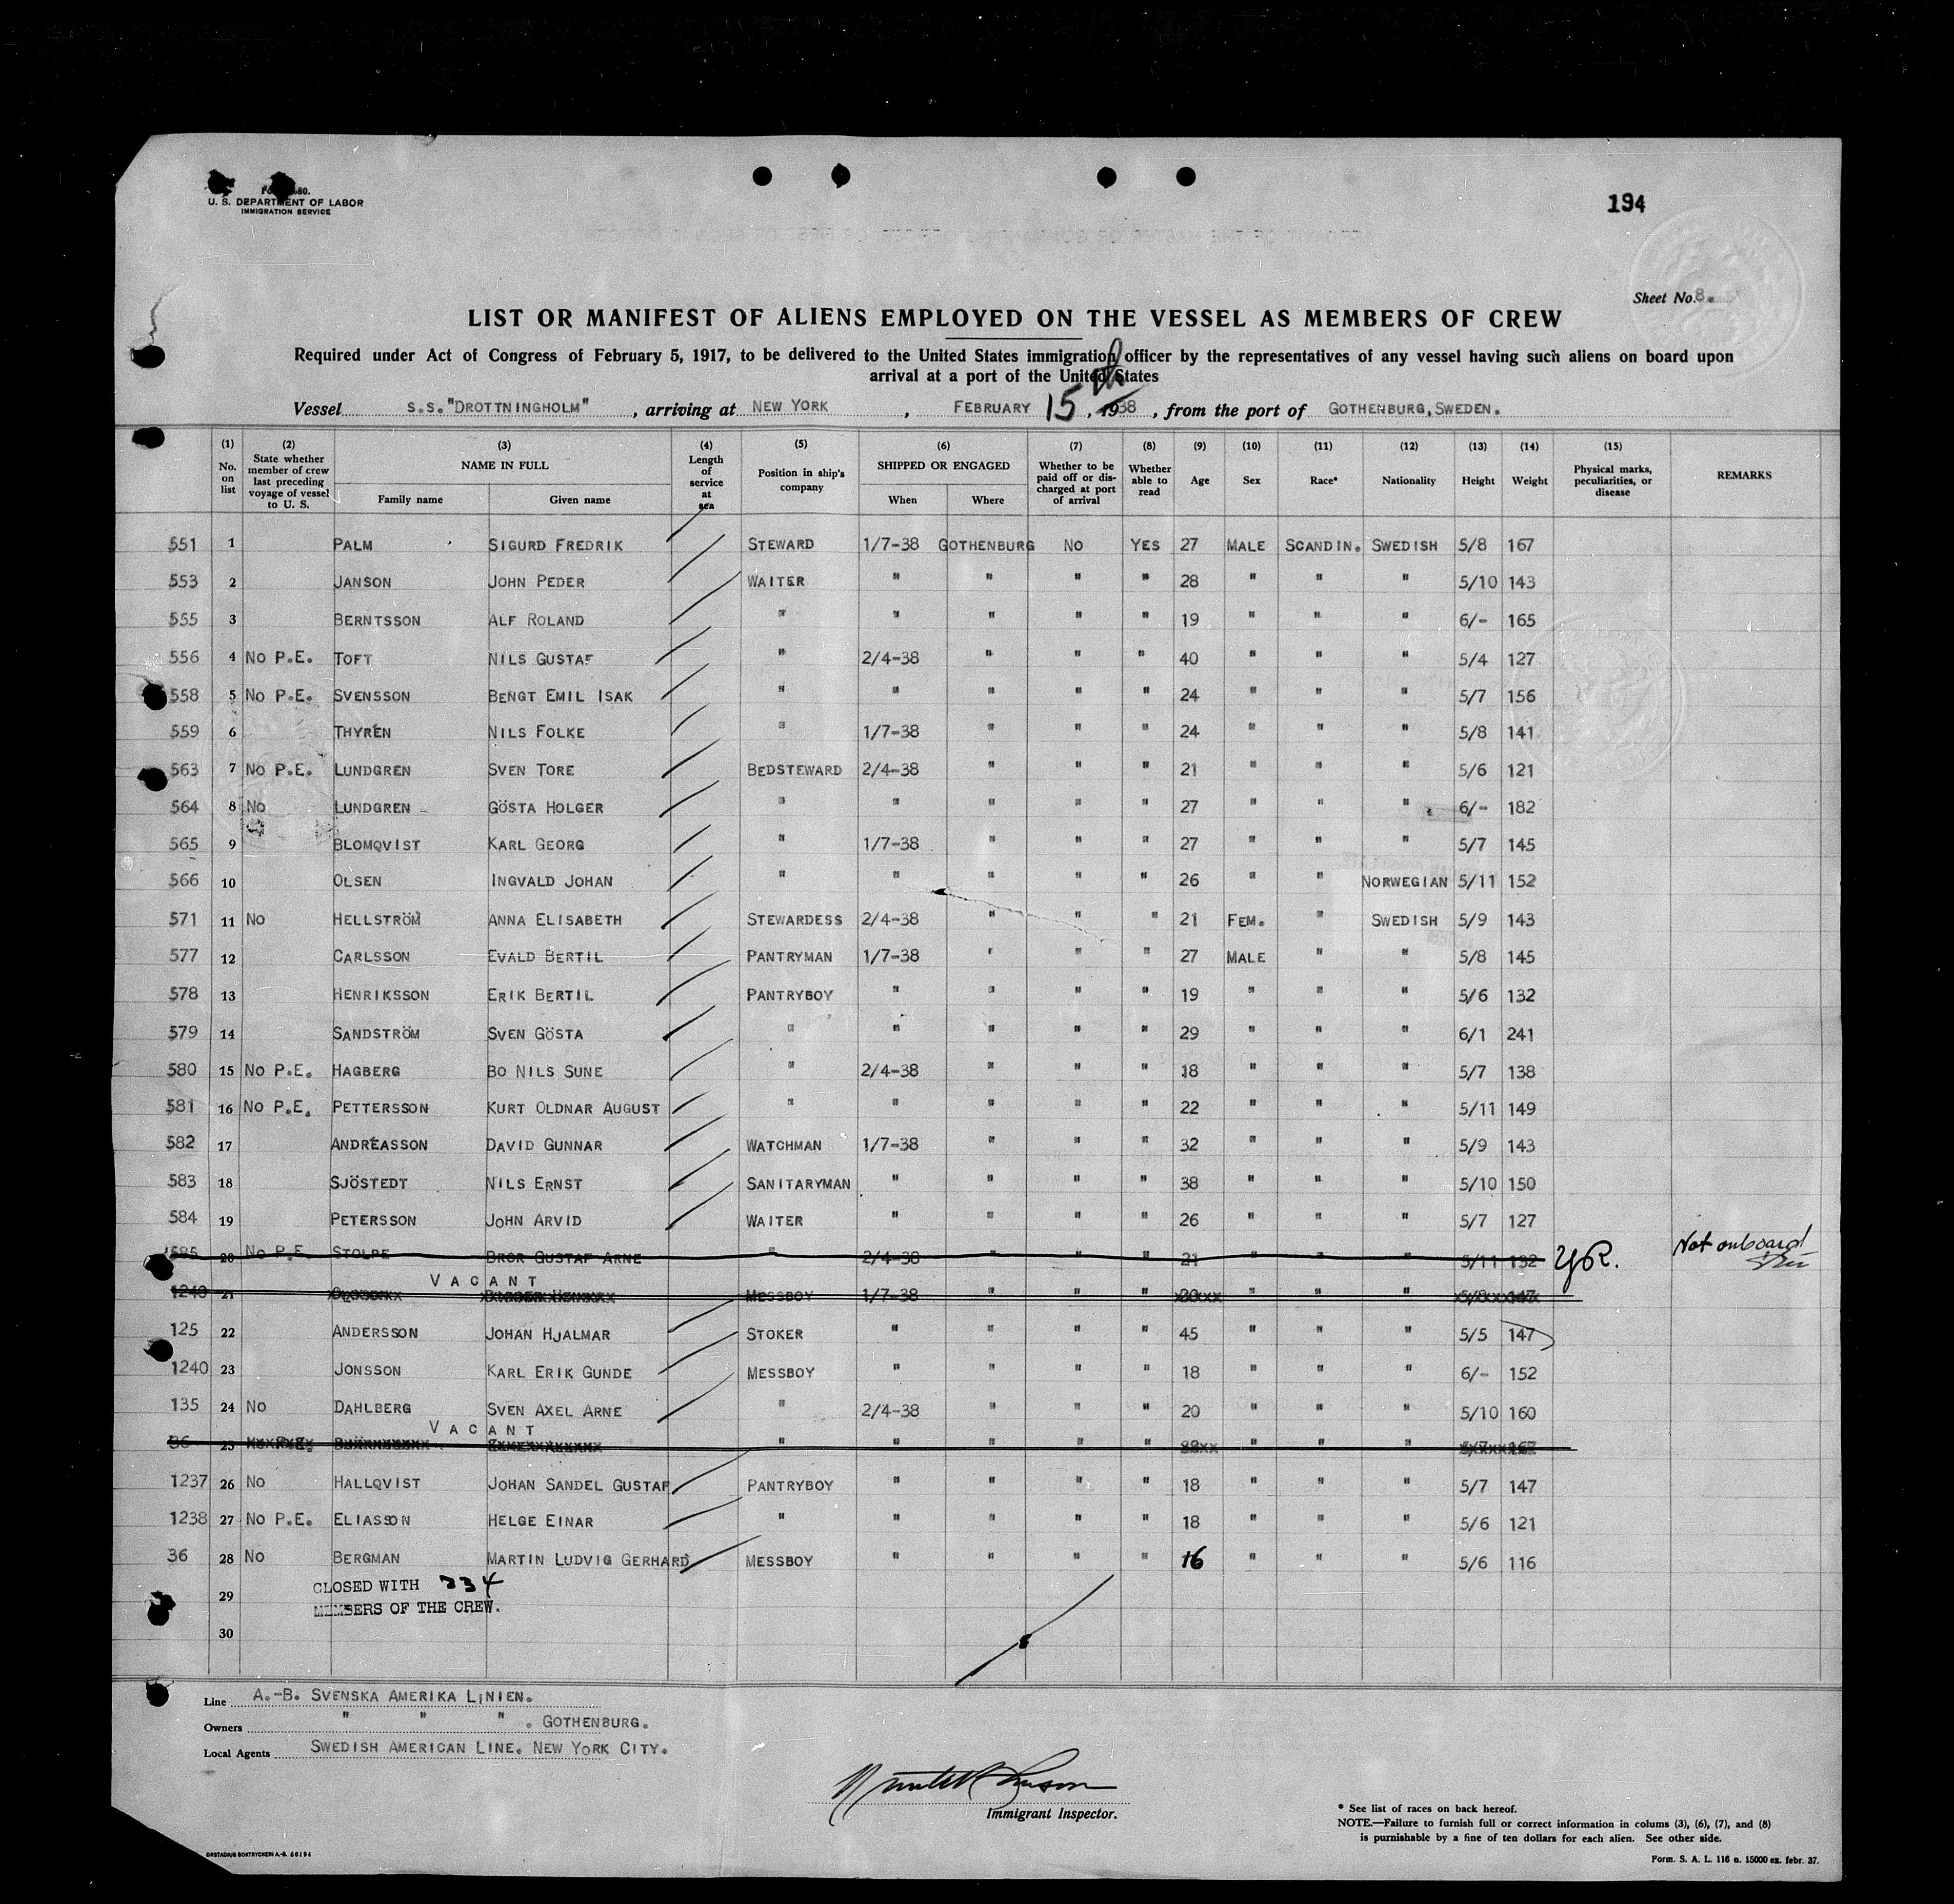 Fo 680.
U. S. DEPARTMENT OF LABOR
IMMIGRATION SERVICE
194
Sheet No. 8.
LIST OR MANIFEST OF ALIENS EMPLOYED ON THE VESSEL AS MEMBERS OF CREW
Required under Act of Congress of February 5, 1917, to be delivered to the United States immigration officer by the representatives of any vessel having such aliens on board upon
arrival at a port of the United States
Vessel S.S. "DROTTNINGHOLM", arriving at NEW YORK, FEBRUARY 15th, 1938, from the port of GOTHENBURG, SWEDEN.
(1) No. on list (2) State whether member of crew last preceding voyage of vessel to U. S. (3) NAME IN FULL Family name Given name (4) Length of service at sea (5) Position in ship's company (6) SHIPPED OR ENGAGED When Where (7) Whether to be paid off or discharged at port of arrival (8) Whether able to read (9) Age (10) Sex (11) Race* (12) Nationality (13) Height (14) Weight (15) Physical marks, peculiarities, or disease REMARKS
551 1 PALM SIGURD FREDRIK STEWARD 1/7-38 GOTHENBURG NO YES 27 MALE SCANDIN. SWEDISH 5/8 167
553 2 JANSON JOHN PEDER WAITER " " " " 28 " " " 5/10 143
555 3 BERNTSSON ALF ROLAND " " " " " 19 " " " 6/- 165
556 4 NO P.E. TOFT NILS GUSTAF " 2/4-38 " " " 40 " " " 5/4 127
558 5 NO P.E. SVENSSON BENGT EMIL ISAK " " " " " 24 " " " 5/7 156
559 6 THYRÉN NILS FOLKE " 1/7-38 " " " 24 " " " 5/8 141
563 7 NO P.E. LUNDGREN SVEN TORE BEDSTEWARD 2/4-38 " " " 21 " " " 5/6 121
564 8 NO LUNDGREN GÖSTA HOLGER " " " " " 27 " " " 6/- 182
565 9 BLOMQVIST KARL GEORG " 1/7-38 " " " 27 " " " 5/7 145
566 10 OLSEN INGVALD JOHAN " " " " " 26 " " NORWEGIAN 5/11 152
571 11 NO HELLSTRÖM ANNA ELISABETH STEWARDESS 2/4-38 " " " 21 FEM. " SWEDISH 5/9 143
577 12 CARLSSON EVALD BERTIL PANTRYMAN 1/7-38 " " " 27 MALE " " 5/8 145
578 13 HENRIKSSON ERIK BERTIL PANTRYBOY " " " " 19 " " " 5/6 132
579 14 SANDSTRÖM SVEN GÖSTA " " " " " 29 " " " 6/1 241
580 15 NO P.E. HAGBERG BO NILS SUNE " 2/4-38 " " " 18 " " " 5/7 138
581 16 NO P.E. PETTERSSON KURT OLDNAR AUGUST " " " " " 22 " " " 5/11 149
582 17 ANDRÉASSON DAVID GUNNAR WATCHMAN 1/7-38 " " " 32 " " " 5/9 143
583 18 SJÖSTEDT NILS ERNST SANITARYMAN " " " " 38 " " " 5/10 150
584 19 PETERSSON JOHN ARVID WAITER " " " " 26 " " " 5/7 127
585 20 NO P.E. STOLPE BROR GUSTAF ARNE " 2/4-38 " " " 21 " " " 5/11 132 Not onboard
VACANT
1240 21 MESSBOY 1/7-38 " " " 20 " " " 5/8 147
125 22 ANDERSSON JOHAN HJALMAR STOKER " " " " 45 " " " 5/5 147
1240 23 JONSSON KARL ERIK GUNDE MESSBOY " " " " 18 " " " 6/- 152
135 24 NO DAHLBERG SVEN AXEL ARNE " 2/4-38 " " " 20 " " " 5/10 160
VACANT
36 25 " " " " " " " "
1237 26 NO HALLQVIST JOHAN SANDEL GUSTAF PANTRYBOY " " " " 18 " " " 5/7 147
1238 27 NO P.E. ELIASSON HELGE EINAR " " " " " 18 " " " 5/6 121
36 28 NO BERGMAN MARTIN LUDVIG GERHARD MESSBOY " " " " 16 " " " 5/6 116
29 CLOSED WITH 334
MEMBERS OF THE CREW.
30
Line A.-B. SVENSKA AMERIKA LINIEN.
Owners " " " . GOTHENBURG.
Local Agents SWEDISH AMERICAN LINE. NEW YORK CITY.
Immigrant Inspector.
* See list of races on back hereof.
NOTE.—Failure to furnish full or correct information in colums (3), (6), (7), and (8)
is purnishable by a fine of ten dollars for each alien. See other side.
ORSTADIUS BOKTRYCKERI A.-B. 60194
Form. S. A. L. 116 a. 15000 ex. febr. 37.